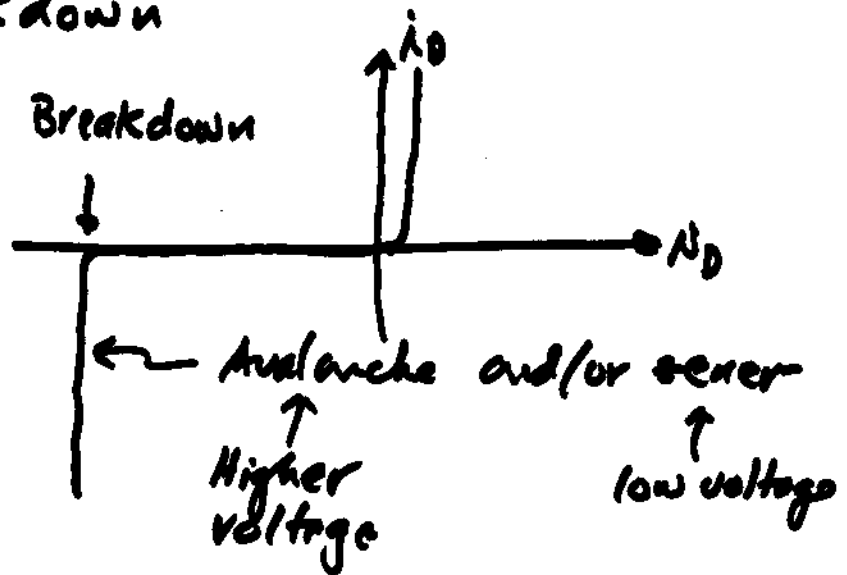 down
i_D
Breakdown
v_D
Avalanche and/or zener
Higher
voltage
low voltage